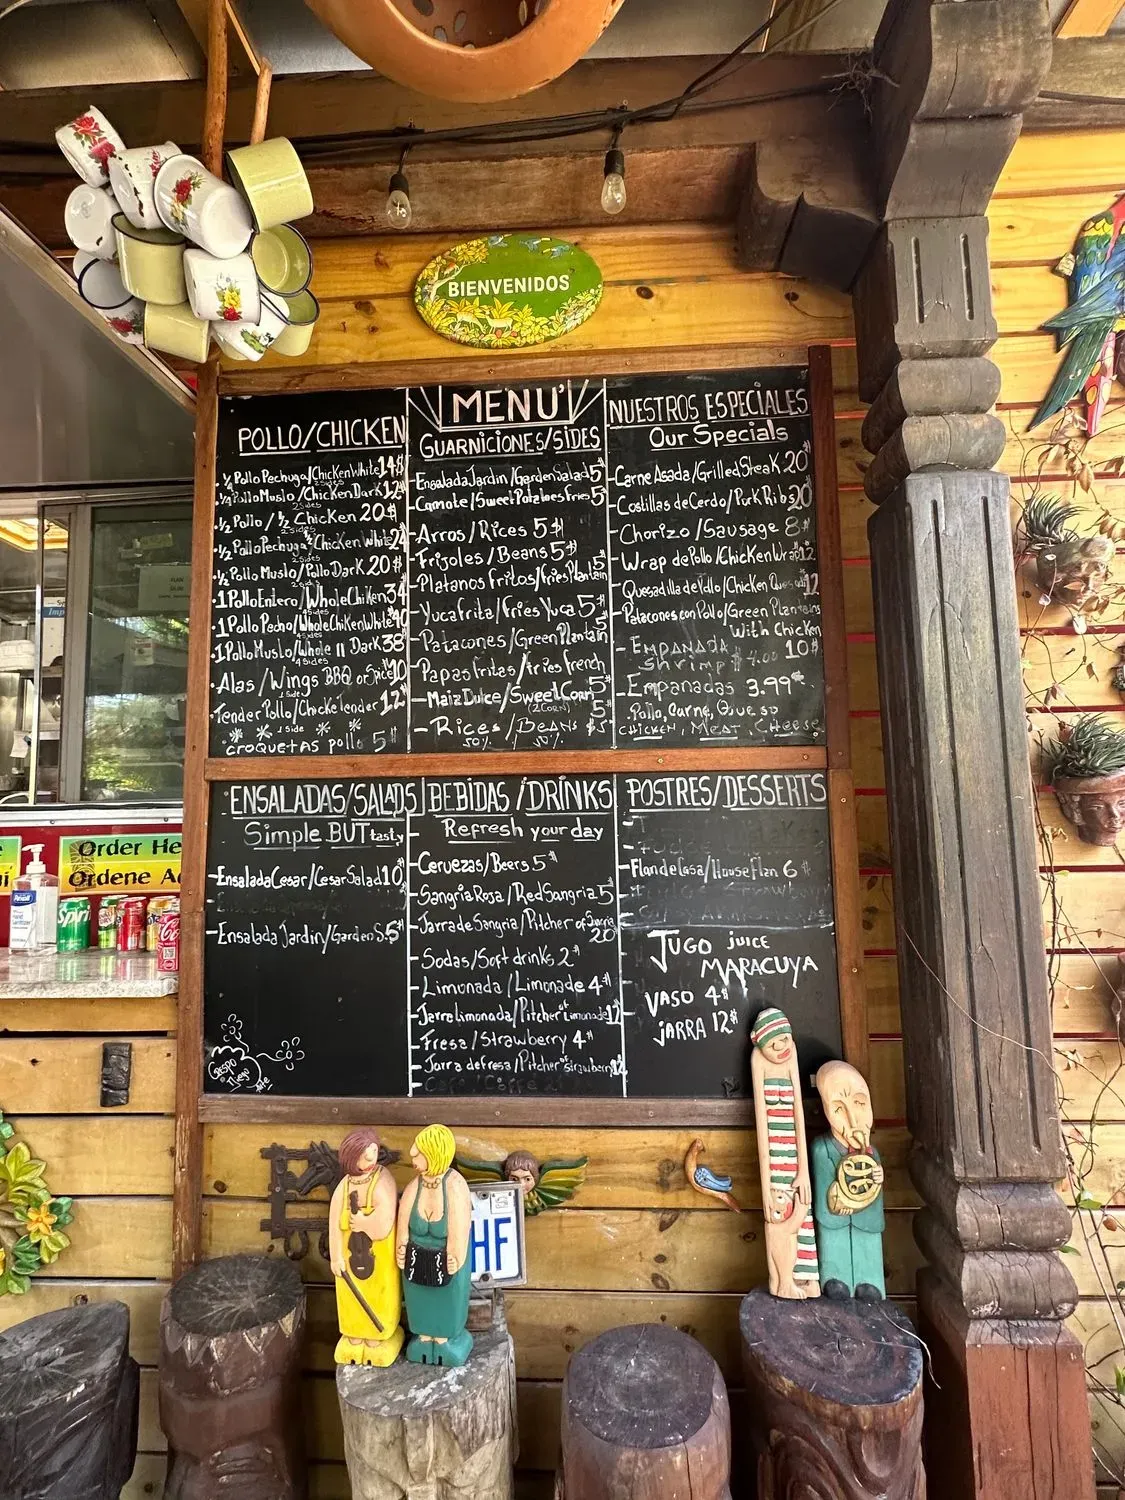 BIENVENIDOS
MENU'
POLLO/CHICKEN
¼ Pollo Pechuga/Chicken White 14$
2 Sides
¼ Pollo Muslo/Chicken Dark 12$
2 Sides
½ Pollo / ½ Chicken 20$
2 Sides
½ Pollo Pechuga/Chicken White 24
2 Sides
½ Pollo Muslo/Pollo Dark 20$
1 Pollo Entero/Whole Chiken 34
4 Sides
1 Pollo Pecho/Whole Chiken White 40
4 Sides
1 Pollo Muslo/Whole II Dark 38
4 Sides
Alas/Wings BBQ or Spice 10
1 Side
Tender Pollo/Chicke Tender 12$
1 Side
CROQUETAS pollo 5$
GUARNICIONES/SIDES
Ensalada Jardin/Garden Salad 5$
Camote/Sweet Potatoes Fries 5$
Arros/Rices 5$
Frijoles/Beans 5$
Platanos fritos/fries Plantain 5
Yuca frita/Fries Yuca 5$
Patacones/Green Plantain 5
Papas fritas/fries french
Maiz Dulce/Sweel Corn 5$
(2 CORN)
Rices/BEANS $5
50% / 50%
NUESTROS ESPECIALES
Our Specials
Carne Asada/Grilled SteaK 20$
Costillas de Cerdo/Pork Ribs 20
Chorizo/Sausage 8$
Wrap de Pollo/Chicken Wrap 12
Quesadilla de Pollo/Chicken 12
Patacones con Pollo/Green Plantains
With Chicken 10$
EMPANADA
Shrimp $4.00
Empanadas 3.99
Pollo, Carne, Queso
CHICKEN, MEAT, CHEESE
ENSALADAS/SALADS
Simple BUT tasty
Ensalada Cesar/Cesar Salad 10$
Ensalada Jardin/Garden S. 5$
BEBIDAS/DRINKS
Refresh your day
Cervezas/Beers 5$
Sangria Rosa/Red Sangria 5
Jarra de Sangria/Pitcher of Sangria 20
Sodas/Soft drinks 2$
Limonada/Limonade 4$
Jarre limonada/Pitcher of Limonade 12
Fresa/Strawberry 4$
Jarra de fresa/Pitcher of strawberry 12
POSTRES/DESSERTS
Flan de Casa/House Flan 6$
JUGO juice
MARACUYA
VASO 4$
JARRA 12$
Order He
Ordene A
Sprit
HF